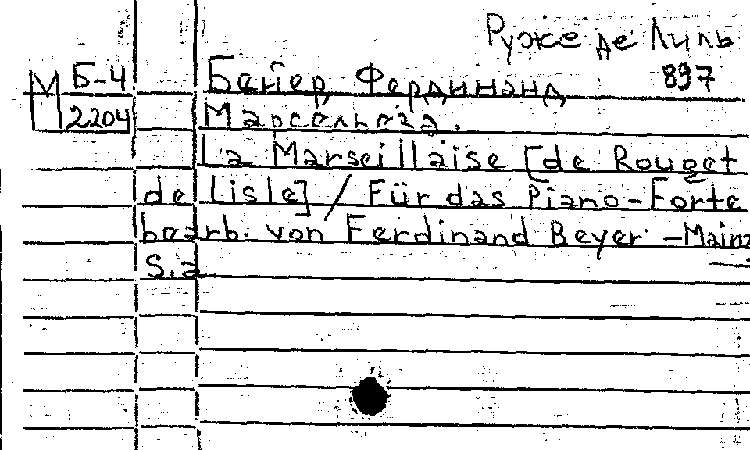 Руже де Лиль
Б-4 Бейер, Фердинанд 897
М 2204 Марсельеза.
La Marseillaise [de Rouget
de Lisle] / Für das Piano-Forte
bearb. von Ferdinand Beyer. - Mainz
S.a